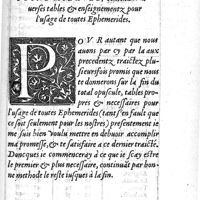 uerses tables & enseignementz pour
l'usage de toutes Ephemerides.
POVR autant que nous
auons par cy par la aux
precedentz traictez plu-
sieursfois promis que nous
te donnerons sur la fin du
total opuscule, tables pro-
pres & necessaires pour
l'usage de toutes Ephemerides (tant s'en fault que
ce soit seulement pour les nostres) presentement ie
me suis bien voulu mettre en debuoir accomplir
ma promesse, & te satisfaire a ce dernier traicté.
Doncques ie commenceray à ce que ie scay estre
le premier & plus necessaire, continuãt par bon-
ne methode le reste iusques à la fin.